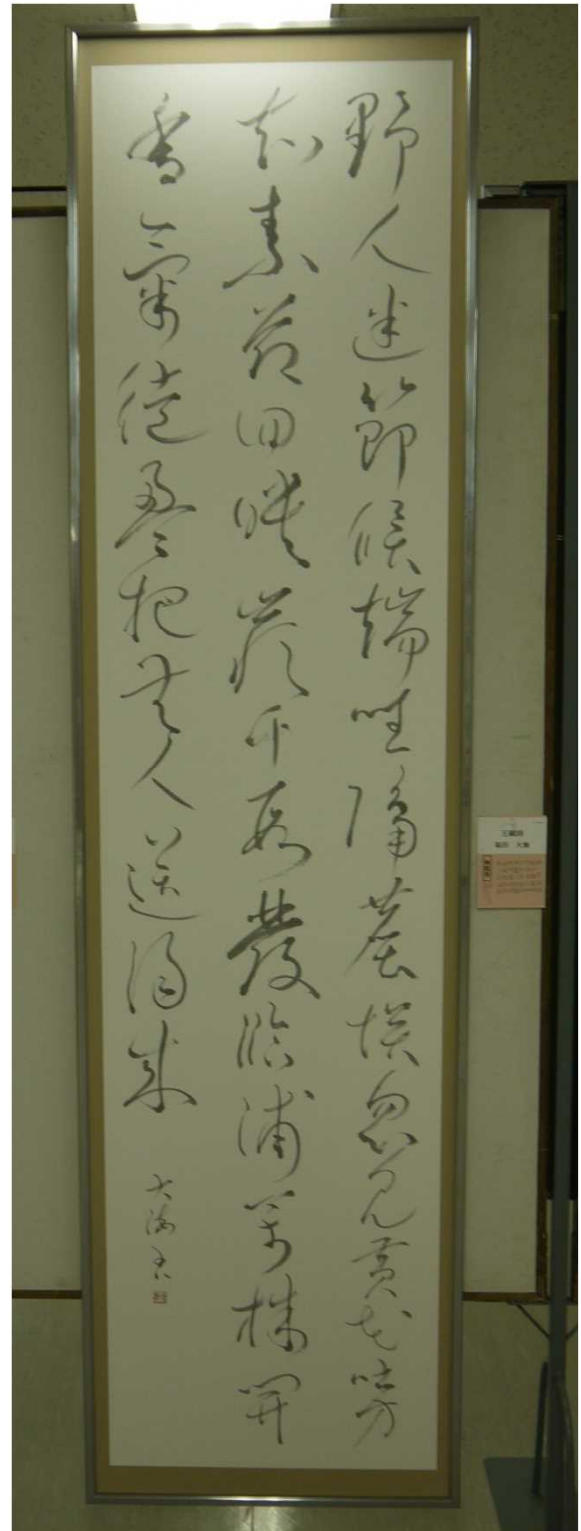 野人迷節候端坐隔塵埃忽見黄花吐方
知素節回暎巖千段發臨浦萬株開
香氣徒盈把無人送酒來
大海
王績詩